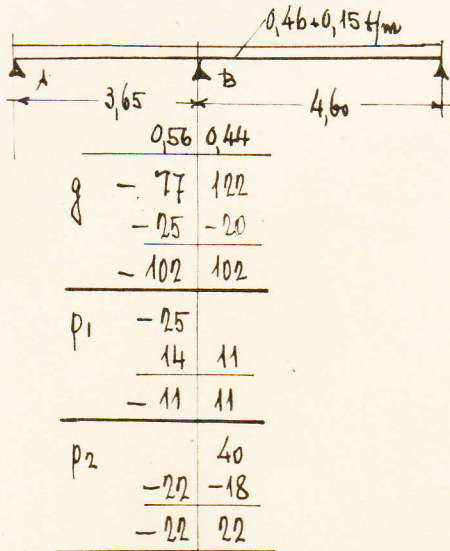 0,46+0,15 t/m
A B
3,65 4,60
0,56 0,44
g - 77 122
-25 -20
- 102 102
p1 -25
14 11
- 11 11
p2 40
-22 -18
-22 22